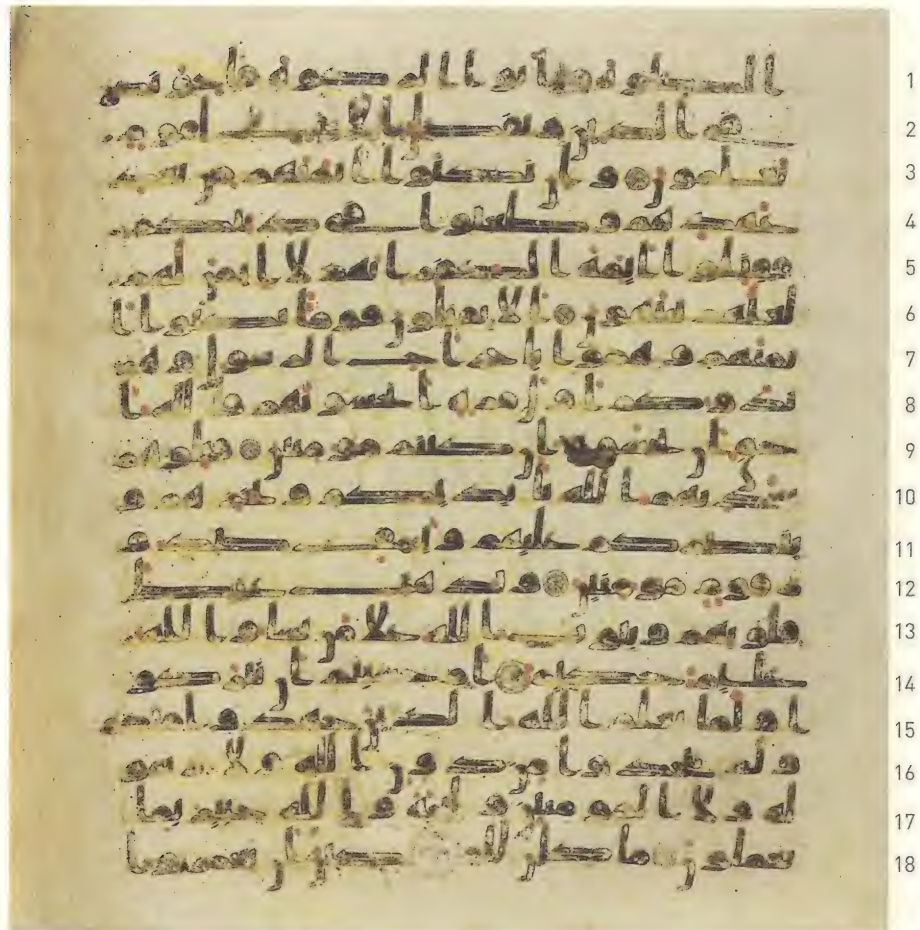 ا الصلوة واتوا الزكوة فاخونكم 1
في الدين ونفصل الايت لقوم 2
يعلمون وان نكثوا ايمنهم من بعد 3
عهدهم وطعنوا في دينكم 4
فقتلوا ايمة الكفر انهم لا ايمن لهم 5
لعلهم ينتهون الا تقتلون قوما نكثوا ا 6
يمنهم وهموا باخراج الرسول وهم 7
بدوكم اول مرة اتخشونهم فالله ا 8
حق ان تخشوه ان كنتم مومنين قتلوهم 9
يعذبهم الله بايديكم ويخزهم و 10
ينصركم عليهم ويشف صدور 11
قوم مومنين ويذهب غيظ 12
قلوبهم ويتوب الله على من يشا والله 13
عليم حكيم ام حسبتم ان تتركو 14
ا ولما يعلم الله الذين جهدوا منكم 15
ولم يتخذوا من دون الله ولا رسو 16
له ولا المومنين وليجة والله خبير بما 17
تعملون ما كان للمشركين ان يعمروا 18